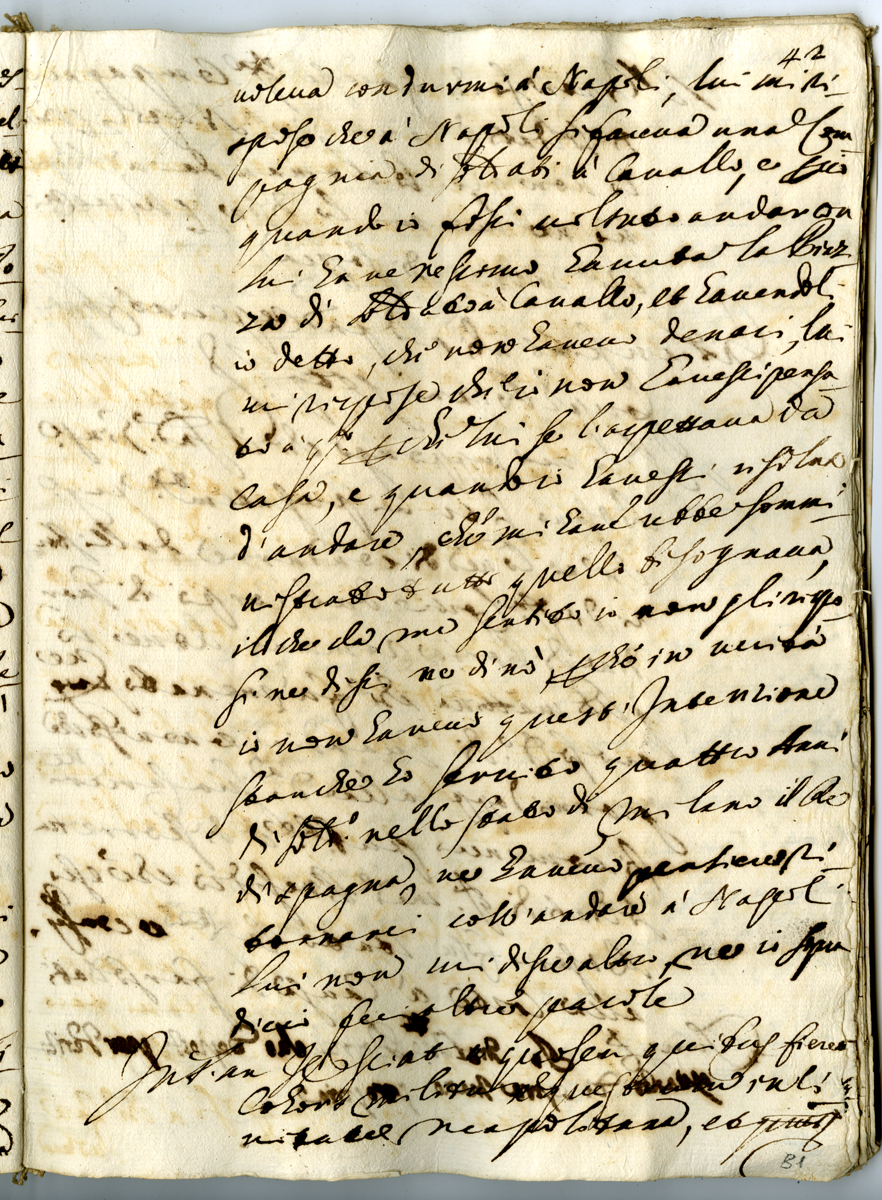 42
voleva condurmi à Napoli, lui mi ri-
spose che à Napoli si faceva una Com
pagnia di soldati à Cavallo, e che
quando io fossi voluto andar con
lui haveressimo havuta la Piaz
za di soldato à Cavallo, et havendoli
io detto, che non havevo denari, lui
mi rispose che io non havessi pensa
to à che lui se l'aspettava da
Casa, e quando io havessi risoluto
d'andare, che mi haverebbe sommi
nistrato tutto quello bisognava,
il che da me sentito io non gli rispo
si ne di si, ne di nò, perché in verità
io non havevo questa Intenzione
stanche ho servito quattro Anni
di soldato nello stato di Milano il Re
di spagna, ne havevo pensiero di
tornarci coll'andare à Napoli
lui non mi disse altro, ne io sopra
di ciò feci altre parole
Int. an sciat a quo seu quibus fieret
Cohors militum equestrium in Ci
vitate neapolitana, et
B1